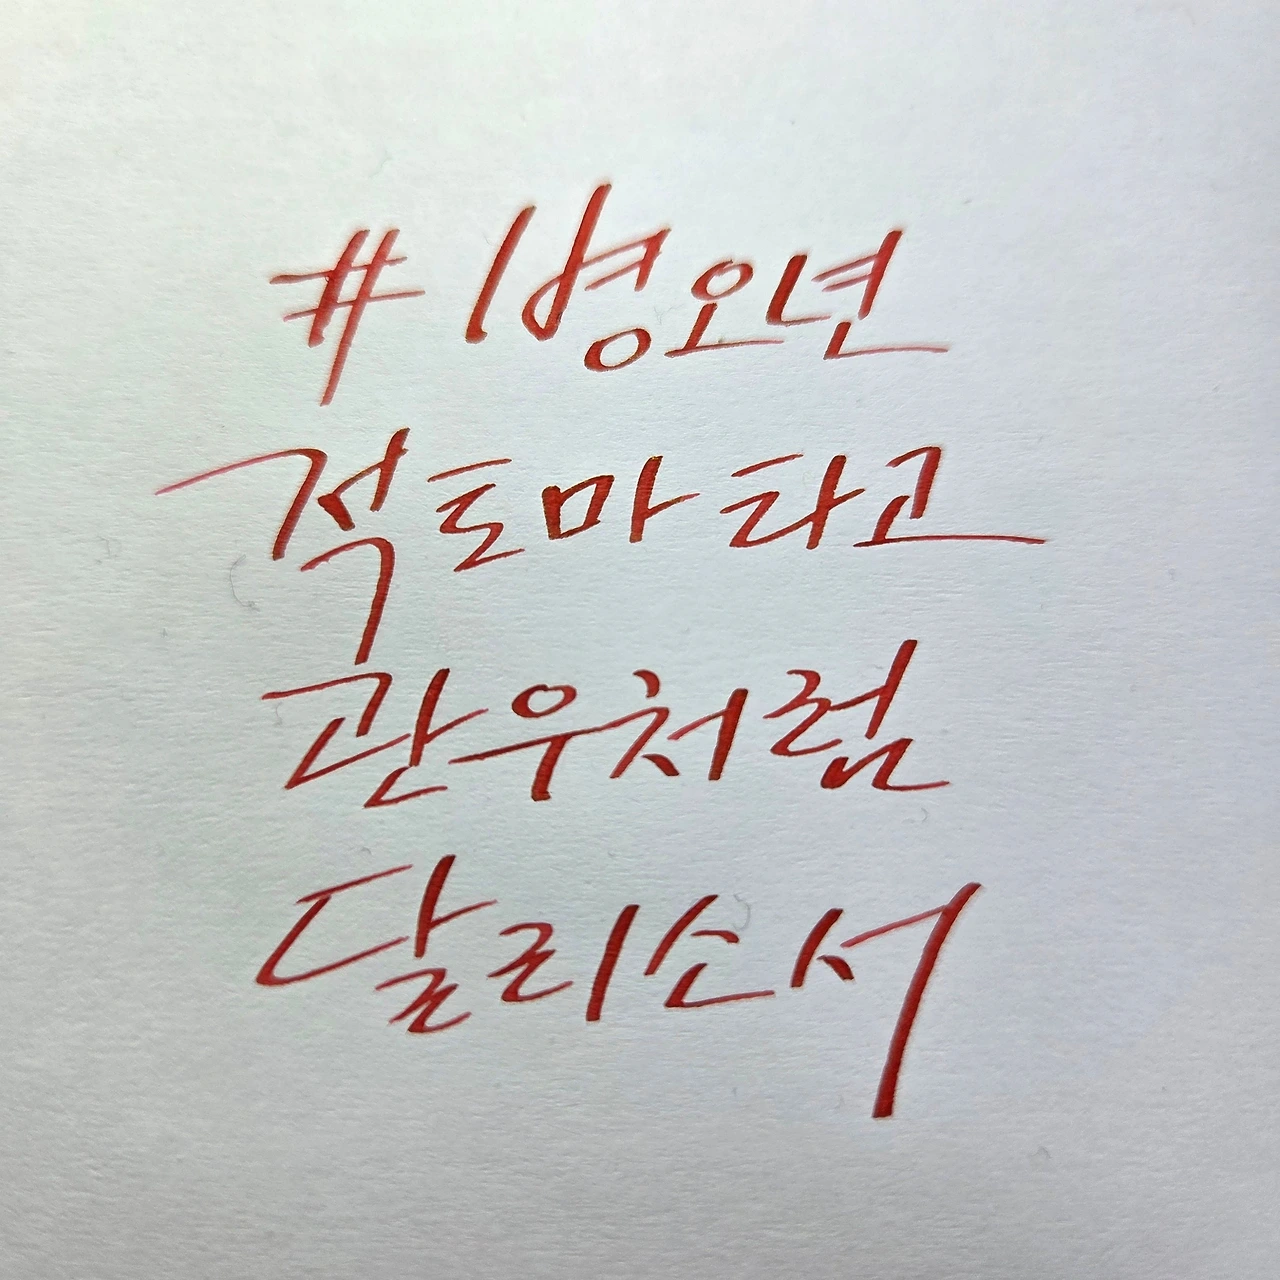 #병오년
적토마 타고
관우처럼
달리소서